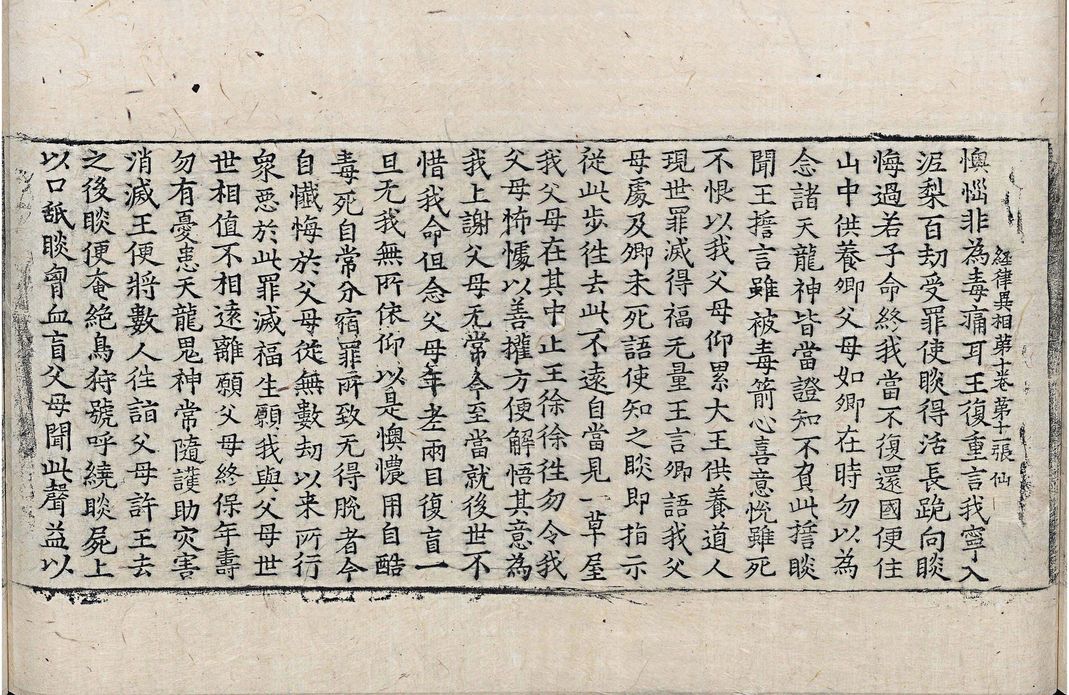 經律異相第十卷 第十一張 仙
懊惱非為毒痛耳王復重言我寧入
泥梨百劫受罪使睒得活長跪向睒
悔過若子命終我當不復還國便住
山中供養卿父母如卿在時勿以為
念諸天龍神皆當證知不負此誓睒
聞王誓言雖被毒箭心喜意悅雖死
不恨以我父母仰累大王供養道人
現世罪滅得福无量王言卿語我父
母處及卿未死語使知之睒即指示
從此步徃去此不遠自當見一草屋
我父母在其中止王徐徐徃勿令我
父母怖懅以善權方便解悟其意為
我上謝父母无常今至當就後世不
惜我命但念父母年老兩目復盲一
旦无我無所依仰以是懊憹用自酷
毒死自常分宿罪所致无得脫者今
自懺悔於父母從無數劫以来所行
衆惡於此罪滅福生願我與父母世
世相值不相遠離願父母終保年壽
勿有憂患天龍鬼神常隨護助灾害
消滅王便將數人徃詣父母許王去
之後睒便奄絕鳥狩號呼繞睒屍上
以口舐睒胷血盲父母聞此聲益以